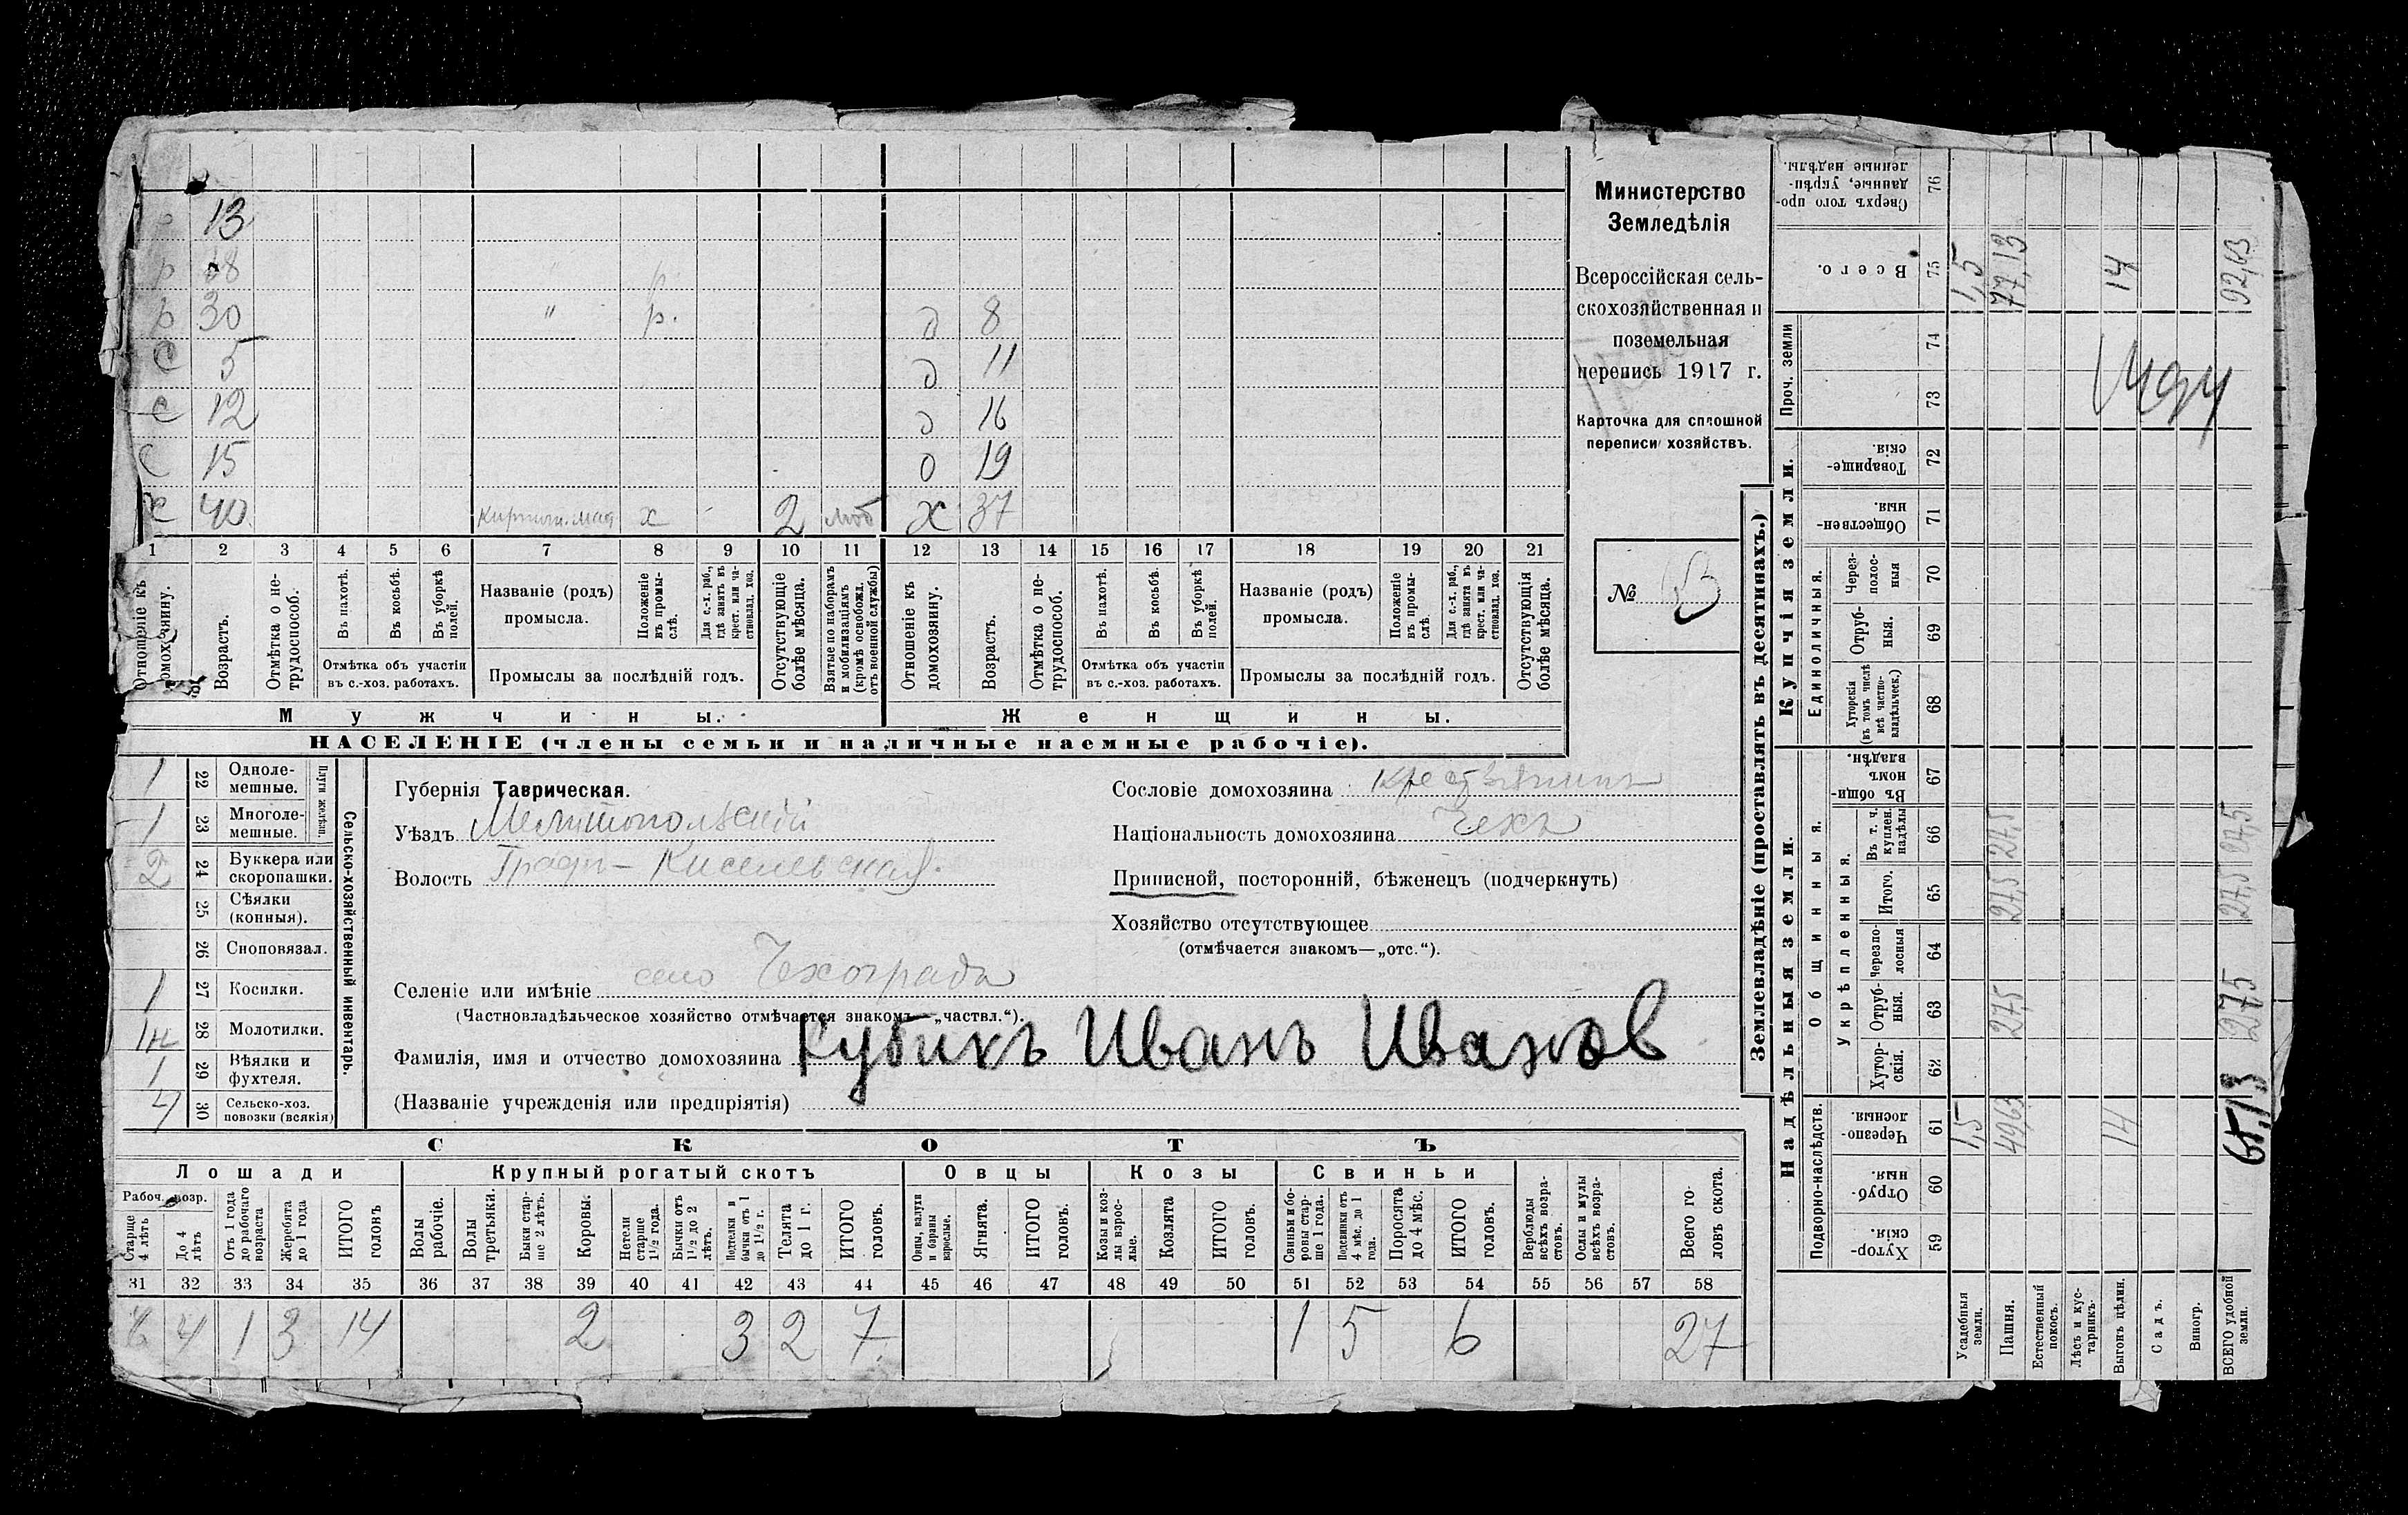 Министерство
Земледѣлія
Всероссійская сель-
скохозяйственная и
поземельная
перепись 1917 г.
Карточка для сплошной
переписи хозяйствъ.
№ 13
р 13
р 18 " р.
р 30 " р. д 8
С 5 д 11
С 12 д 16
С 15 д 19
х 40 х 2 моб х 37
1 2 3 4 5 6 7 8 9 10 11 12 13 14 15 16 17 18 19 20 21
Отношеніе къ домохозяину.
Возрастъ.
Отмѣтка о не-трудоспособ.
Въ пахотѣ.
Въ косьбѣ.
Въ уборкѣ полей.
Отмѣтка объ участіи
въ с.-хоз. работахъ.
Названіе (родъ)
промысла.
Положеніе въ промы-слѣ.
Для с.-х. раб., гдѣ занятъ въ крест. или ча-стновлад. хоз.
Промыслы за послѣдній годъ.
Отсутствующіе болѣе мѣсяца.
Взятые по наборамъ и мобилизаціямъ (кромѣ освобожд. отъ военной службы)
Отношеніе къ домохозяину.
Возрастъ.
Отмѣтка о не-трудоспособ.
Въ пахотѣ.
Въ косьбѣ.
Въ уборкѣ полей.
Отмѣтка объ участіи
въ с.-хоз. работахъ.
Названіе (родъ)
промысла.
Положеніе въ промы-слѣ.
Для с.-х. раб., гдѣ занята въ крест. или ча-стновлад. хоз.
Промыслы за послѣдній годъ.
Отсутствующія болѣе мѣсяца.
Мужчины. Женщины.
НАСЕЛЕНІЕ (члены семьи и наличные наемные рабочіе).
Сельско-хозяйственный инвентарь.
Плуги желѣзн.
1 22 Одноле-мешные.
1 23 Многоле-мешные.
2 24 Буккера или скоропашки.
25 Сѣялки (конныя).
26 Сноповязал.
1 27 Косилки.
28 Молотилки.
1 29 Вѣялки и фухтеля.
4 30 Сельско-хоз. повозки (всякія)
Губернія Таврическая.
Уѣздъ Мелитопольскій
Волость Графъ-Киселевская.
Сословіе домохозяина крестьянинъ
Національность домохозяина Чехъ
Приписной, посторонній, бѣженецъ (подчеркнуть)
Хозяйство отсутствующее
(отмѣчается знакомъ—„отс.“).
Селеніе или имѣніе село Чехоградъ
(Частновладѣльческое хозяйство отмѣчается знакомъ—„частвл.“).
Фамилія, имя и отчество домохозяина Кубикъ Иванъ Иванов
(Названіе учрежденія или предпріятія)
СКОТЪ
Лошади Крупный рогатый скотъ Овцы Козы Свиньи
Рабоч. возр.
Старше 4 лѣтъ
До 4 лѣтъ
Отъ 1 года до рабочаго возраста
Жеребята до 1 года
ИТОГО головъ
Волы рабочіе.
Волы третьяки.
Быки стар-ше 2 лѣтъ.
Коровы.
Нетели старше 1½ года.
Бычки отъ 1½ до 2 лѣтъ.
Подтелки и бычки отъ 1 до 1½ г.
Телята до 1 г.
ИТОГО головъ.
Овцы, валухи и бараны взрослые.
Ягнята.
ИТОГО головъ.
Козы и коз-лы взрос-лые.
Козлята
ИТОГО головъ.
Свиньи и бо-ровы стар-ше 1 года.
Подсвинки отъ 4 мѣс. до 1 года.
Поросята до 4 мѣс.
ИТОГО головъ.
Верблюды всѣхъ возра-стовъ.
Ослы и мулы всѣхъ возра-стовъ.
Всего го-ловъ скота.
31 32 33 34 35 36 37 38 39 40 41 42 43 44 45 46 47 48 49 50 51 52 53 54 55 56 57 58
6 4 1 3 14 2 3 2 7. 1 5 6 27
Землевладѣніе (проставлять въ десятинахъ.)
Надѣльныя земли. Купчія земли.
Подворно-наслѣдств. Общинныя. Укрѣпленныя. Единоличныя. Проч. земли
Хутор-скія. 59
Отруб-ныя. 60
Черезпо-лосныя. 61
Хутор-скія. 62
Отруб-ныя. 63
Черезпо-лосныя 64
Итого. 65
Въ т. ч. куплен. надѣлы 66
Въ общи-номъ владѣн. 67
Хуторскія (въ томъ числѣ всѣ частно-владѣльческ.) 68
Отруб-ныя. 69
Через-полос-ныя 70
Обществен-ныя. 71
Товарище-скія 72
73
74
Всего. 75
Сверхъ того про-данные, укрѣп-ленные надѣлы. 76
Усадебныя земли. 1,5 1,5
Пашня. 49,63 27,5 27,5 27,5 77,13
Естественный покосъ.
Лѣсъ и кус-тарникъ.
Выгонъ цѣлин. 14 14
Садъ.
Виногр.
ВСЕГО удобной земли. 65,13 27,5 27,5 27,5 92,63